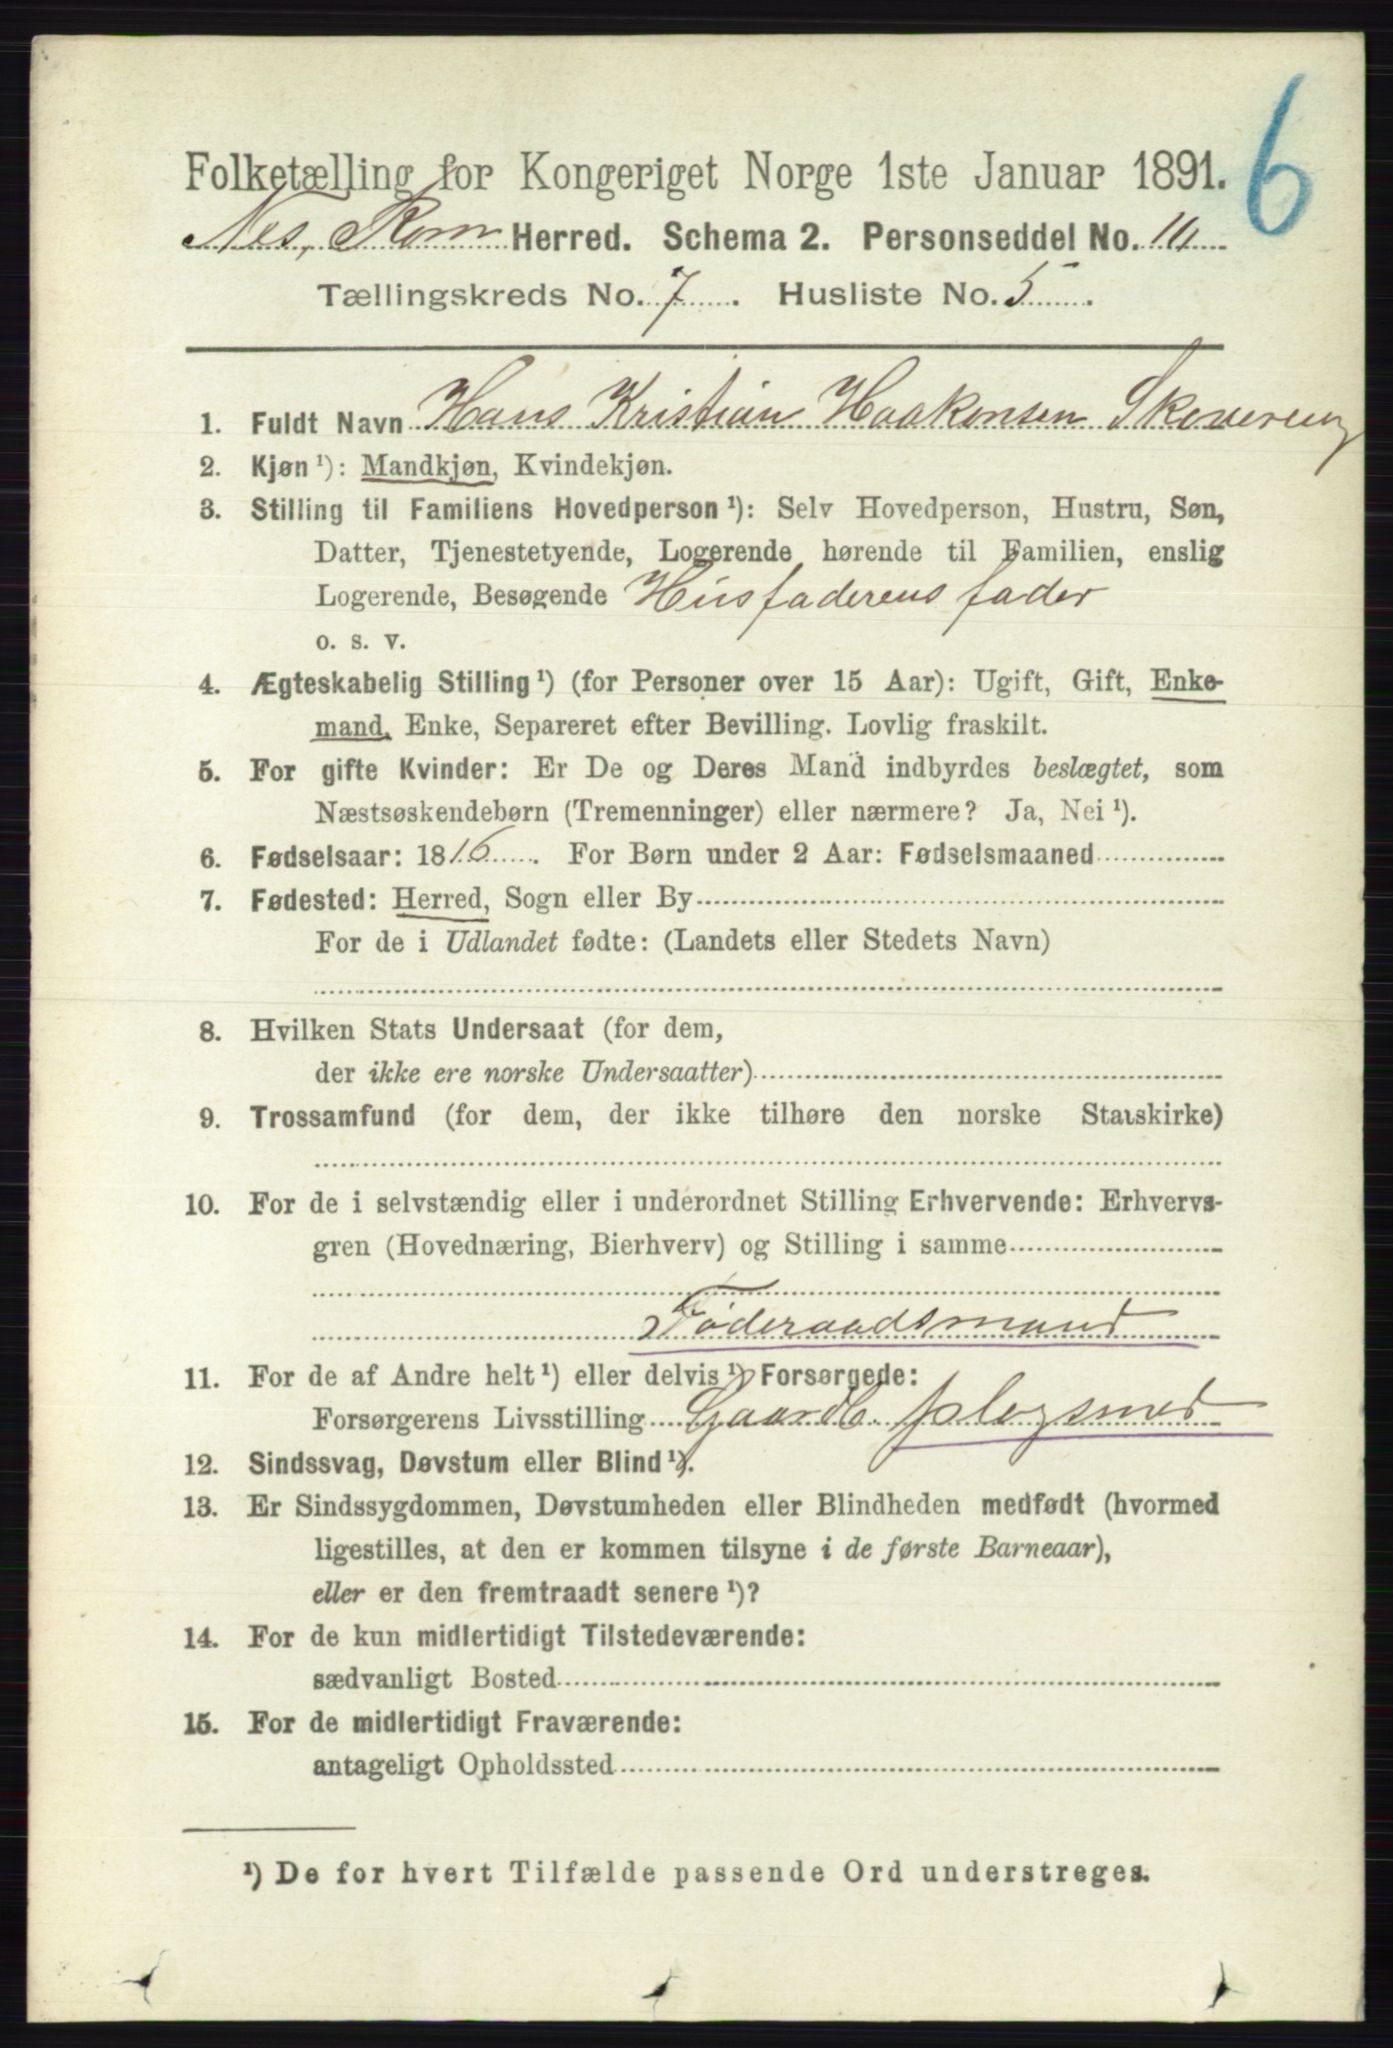 6
Folketælling for Kongeriget Norge 1ste Januar 1891.
Nes, Rom Herred. Schema 2. Personseddel No. 14
Tællingskreds No. 7. Husliste No. 5.
1. Fuldt Navn Hans Kristian Haakensen Skovereng
2. Kjøn ¹): Mandkjøn, Kvindekjøn.
3. Stilling til Familiens Hovedperson ¹): Selv Hovedperson, Hustru, Søn,
Datter, Tjenestetyende, Logerende hørende til Familien, enslig
Logerende, Besøgende Husfaderens fader
o. s. v.
4. Ægteskabelig Stilling ¹) (for Personer over 15 Aar): Ugift, Gift, Enke-
mand, Enke, Separeret efter Bevilling. Lovlig fraskilt.
5. For gifte Kvinder: Er De og Deres Mand indbyrdes beslægtet, som
Næstsøskendebørn (Tremenninger) eller nærmere? Ja, Nei ¹).
6. Fødselsaar: 1816. For Børn under 2 Aar: Fødselsmaaned
7. Fødested: Herred, Sogn eller By
For de i Udlandet fødte: (Landets eller Stedets Navn)
8. Hvilken Stats Undersaat (for dem,
der ikke ere norske Undersaatter)
9. Trossamfund (for dem, der ikke tilhøre den norske Statskirke)
10. For de i selvstændig eller i underordnet Stilling Erhvervende: Erhvervs-
gren (Hovednæring, Bierhverv) og Stilling i samme
Föderaadsmand
11. For de af Andre helt ¹) eller delvis ¹) Forsørgede:
Forsørgerens Livsstilling Gaardb. plogsmed
12. Sindssvag, Døvstum eller Blind ¹).
13. Er Sindssygdommen, Døvstumheden eller Blindheden medfødt (hvormed
ligestilles, at den er kommen tilsyne i de første Barneaar),
eller er den fremtraadt senere ¹)?
14. For de kun midlertidigt Tilstedeværende:
sædvanligt Bosted
15. For de midlertidigt Fraværende:
antageligt Opholdssted
¹) De for hvert Tilfælde passende Ord understreges.